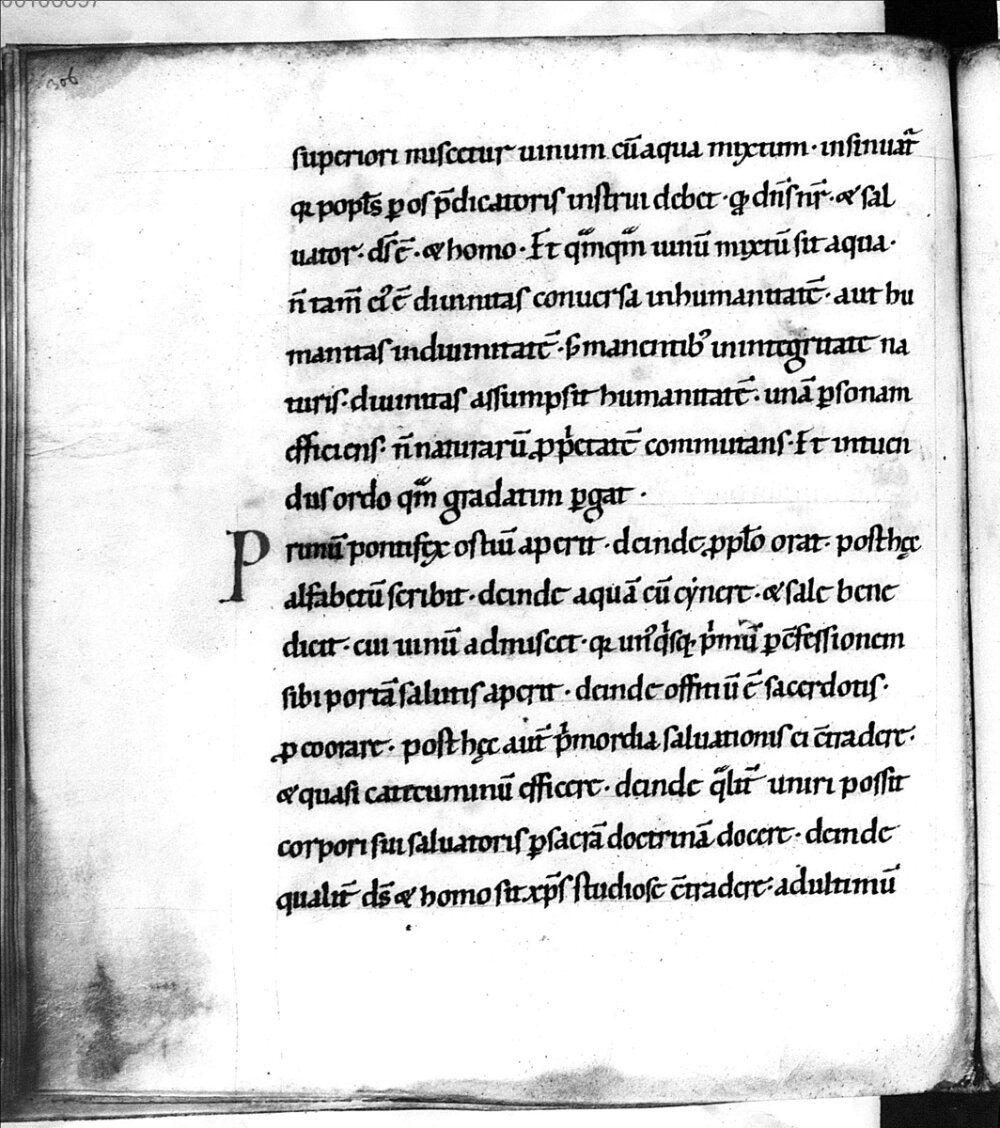 306
superiori miscetur uinum cū aqua mixtum · insinuat᷑
qꝛ popl̄s ꝑ os p̄dicatoris instrui debet · qđ dn̄s nr̄ · & sal
uator · ds̄ ē · & homo · Et qᷓmqᷓm uinū mixtū sit aqua ·
n̄ tam̄ diuinitas conuersa in humanitatē · aut hu
manitas in diuinitatē · sꝫ manentibꝰ in integritate na
turis · diuinitas assumpsit humanitatē · unā ꝑsonam
efficiens · n̄ naturarū ꝓpͥetatē commutans · Et intuen
dus ordo qᷓm gradatim ꝑgat ·
Primū pontifex ostiū aperit · deinde ꝓ pplo orat · post hęc
alfabetū scribit · deinde aquā cū cynere · & sale bene
dicit · cui uinū admiscet · qꝛ unꝰqͥsq; pͥmū ꝑ ɔ̄fessionem
sibi portā salutis aperit · deinde offitiū ē sacerdotis ·
ꝓ eo orare · post hęc aut̄ pͥmordia saluationis ei ɔ̄tradere ·
& quasi catecuminū efficere · deinde qᷓlit̄ uniri possit
corpori sui saluatoris ꝑ sacrā doctrinā docere · deinde
qualit̄ ds̄ & homo sit xp̄s studiose ɔ̄tradere · ad ultimū